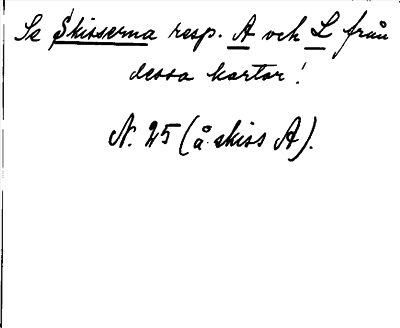 Se Skisserna resp. A och L från
dessa kartor!
N. 25 (å skiss A).